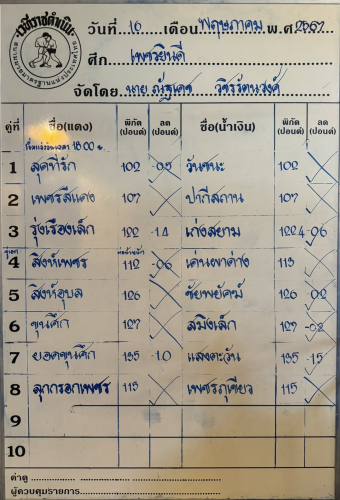 เวทีราชดำเนิน
วันที่ 16 เดือน พฤษภาคม พ.ศ. 2567
ศึก เพชรยินดี
จัดโดย นาย ณัฐเดช วชิรรัตนวงศ์
คู่ที่ ชื่อ(แดง) พิกัด (ปอนด์) ลด (ปอนด์) ชื่อ(น้ำเงิน) พิกัด (ปอนด์) ลด (ปอนด์)
18.00 น.
1 ลูกที่รัก 102 .05 วันชนะ 102
2 เพชรสีแดง 107 ปากีสถาน 107
3 รุ่งเรืองเล็ก 122 .14 เก่งสยาม 122.4 .06
คู่เอก
4 สิงห์เพชร 112 .06 เด่นผาต่าง 113
5 สิงห์อุบล 126 ชัยพยัคฆ์ 126 .02
6 ขุนศึก 127 สมิงเล็ก 127
7 ยอดขุนศึก 135 .10 แสงตะวัน 135 .15
8 ลูกกรอกเพชร 115 เพชรภูเขียว 115
9
10
ค่าดู
ผู้ควบคุมรายการ